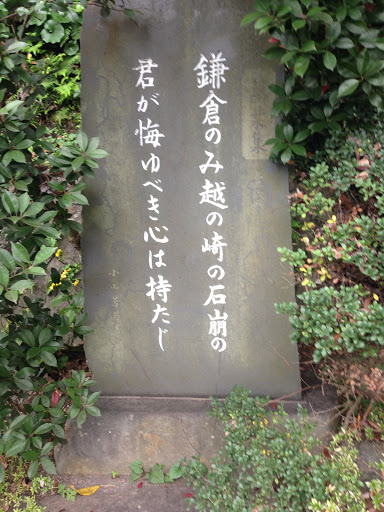 鎌倉のみ越の崎の石崩の
君が悔ゆべき心は持たじ